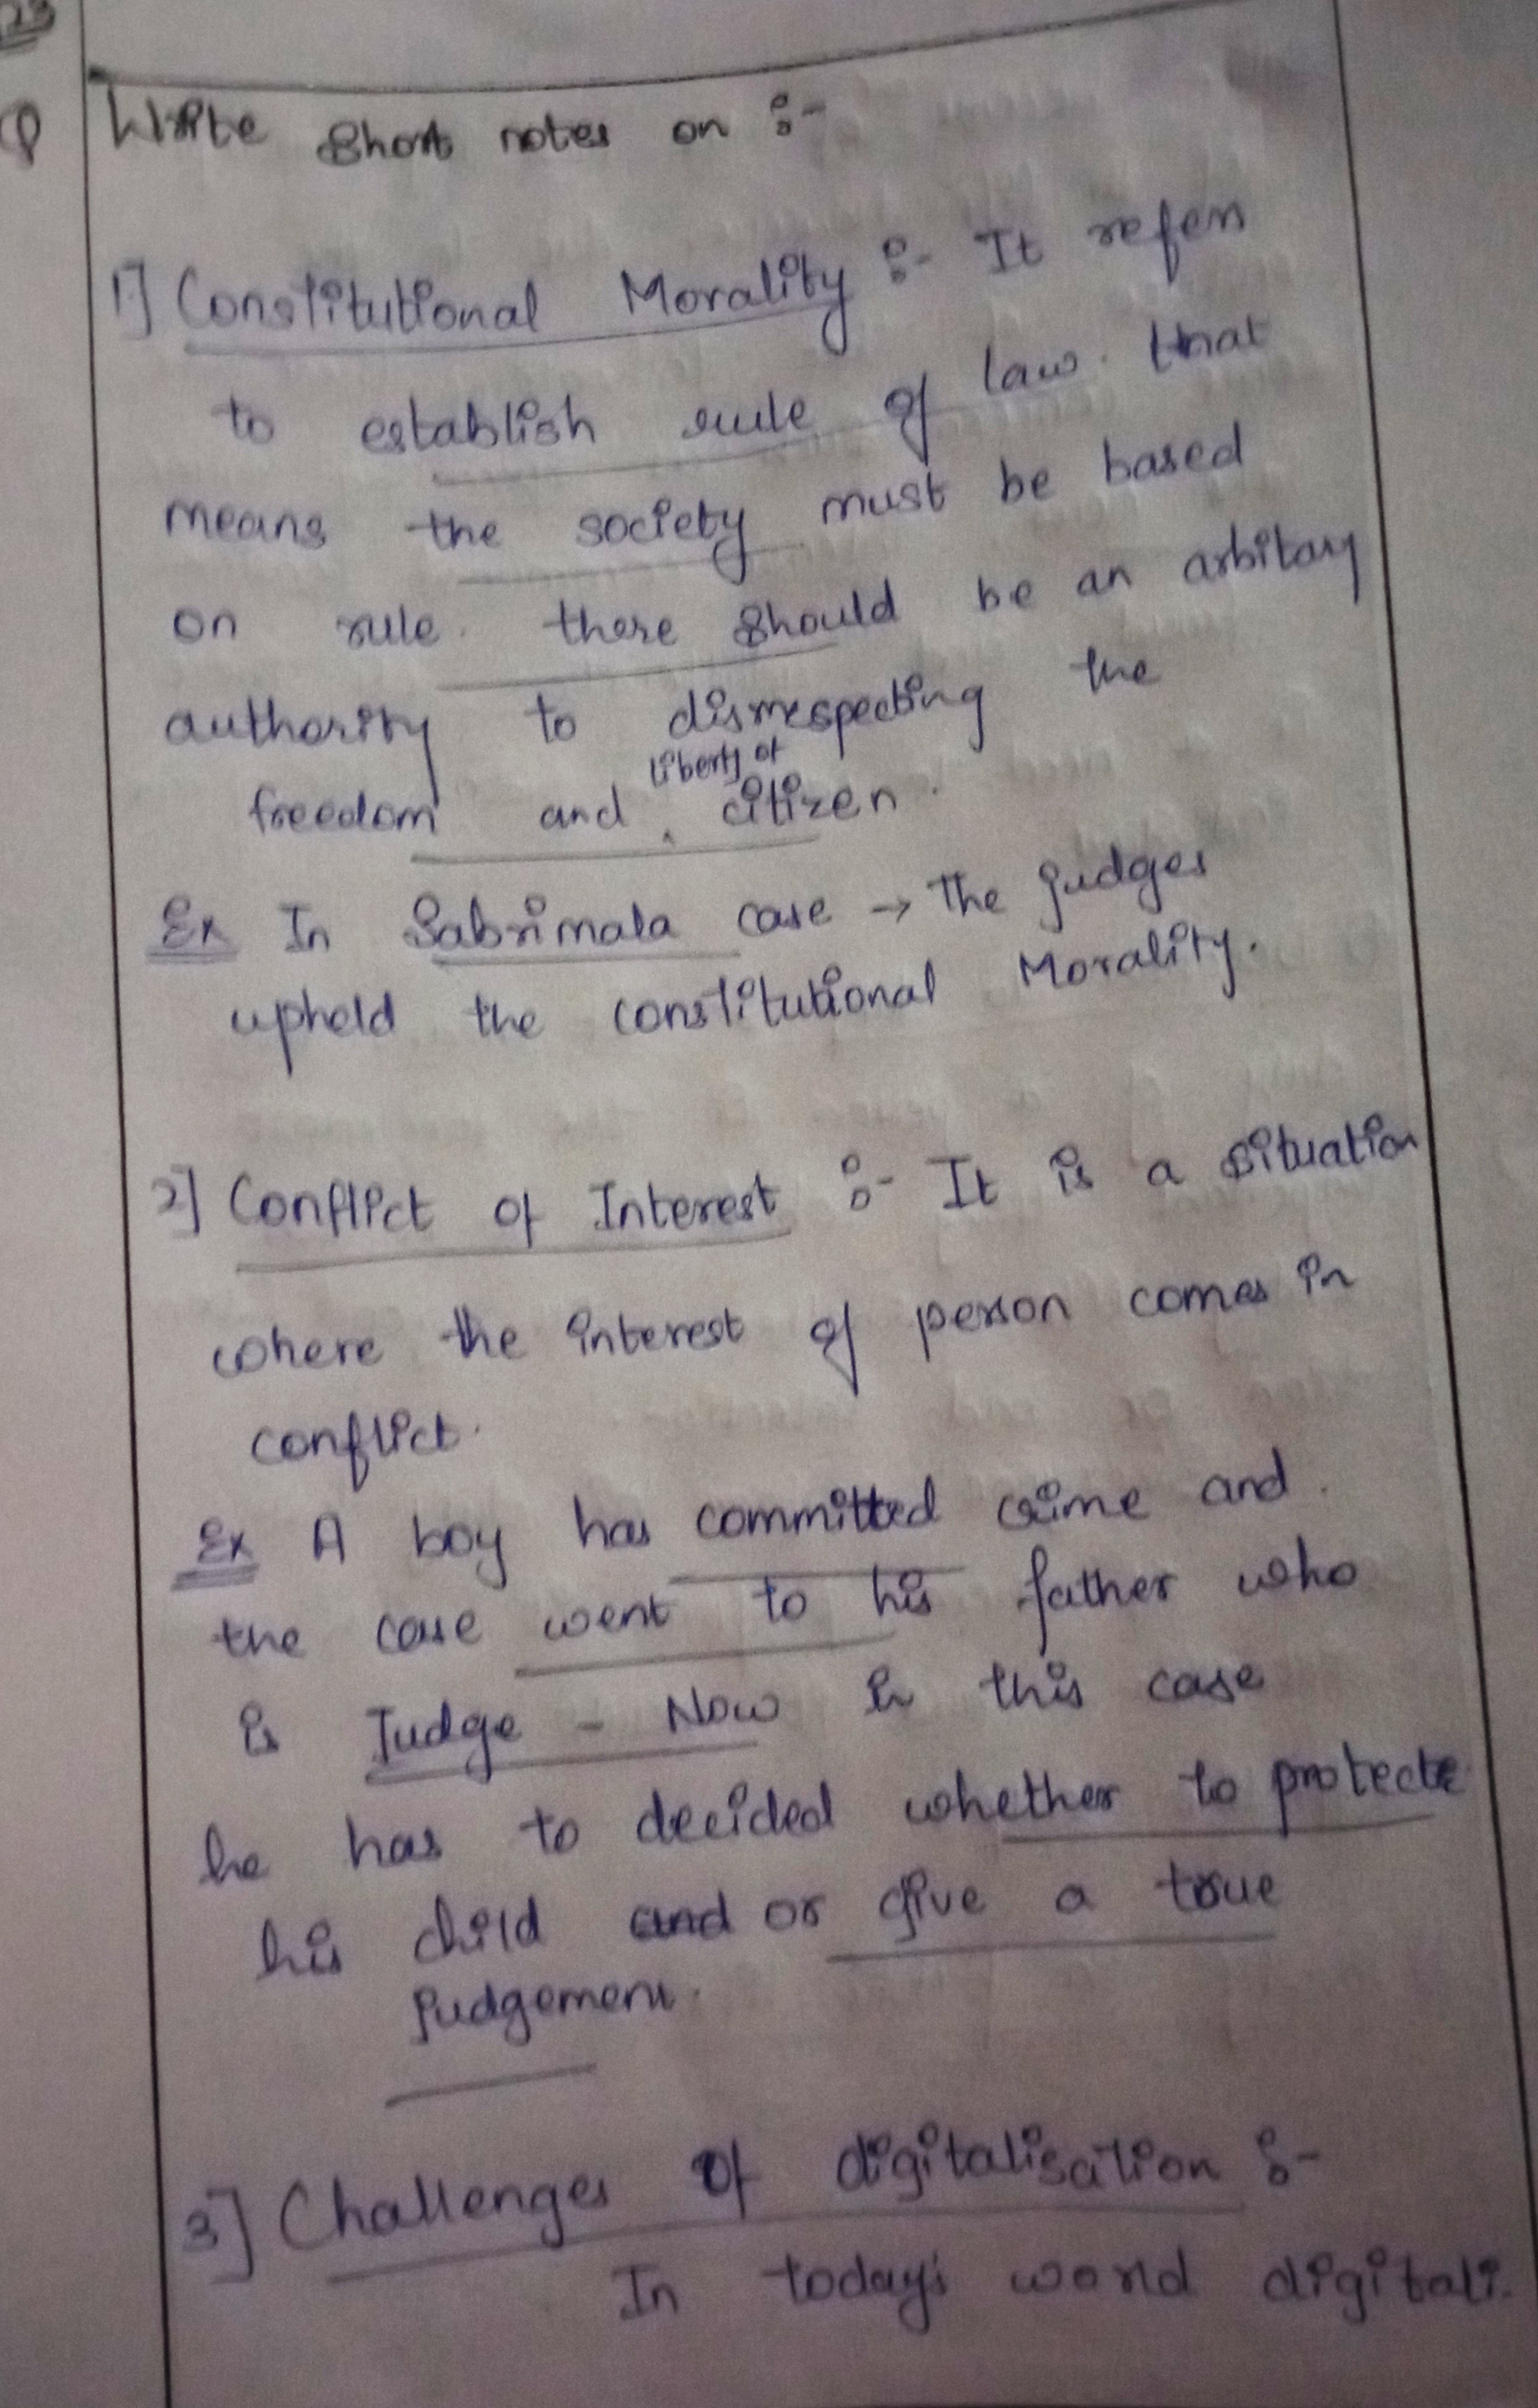 23
Q Write short notes on :-
1] Constitutional Morality :- It refers
to establish rule of law. that
means the society must be based
on rule. there should be an arbitary
authority to disrespecting the
liberty of
freedom and citizen.
Ex In Sabrimala case → The judges
upheld the constitutional Morality.
2] Conflict of Interest :- It is a situation
where the interest of person comes in
conflict.
Ex A boy has committed crime and.
the case went to his father who
is Judge - Now in this case
he has to decided whether to protect
his child and or give a true
judgement.
3] Challenges of digitalisation :-
In today's world digitali.